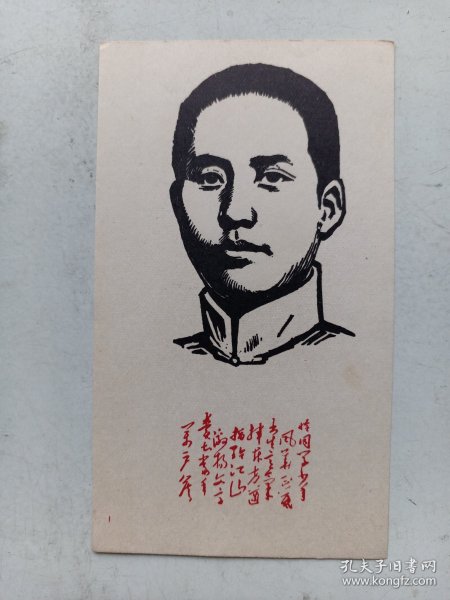 恰同学少年
风华正茂
书生意气
挥斥方遒
指点江山
激扬文字
粪土当年
万户侯
1
孔夫子旧书网
www.kongfz.com